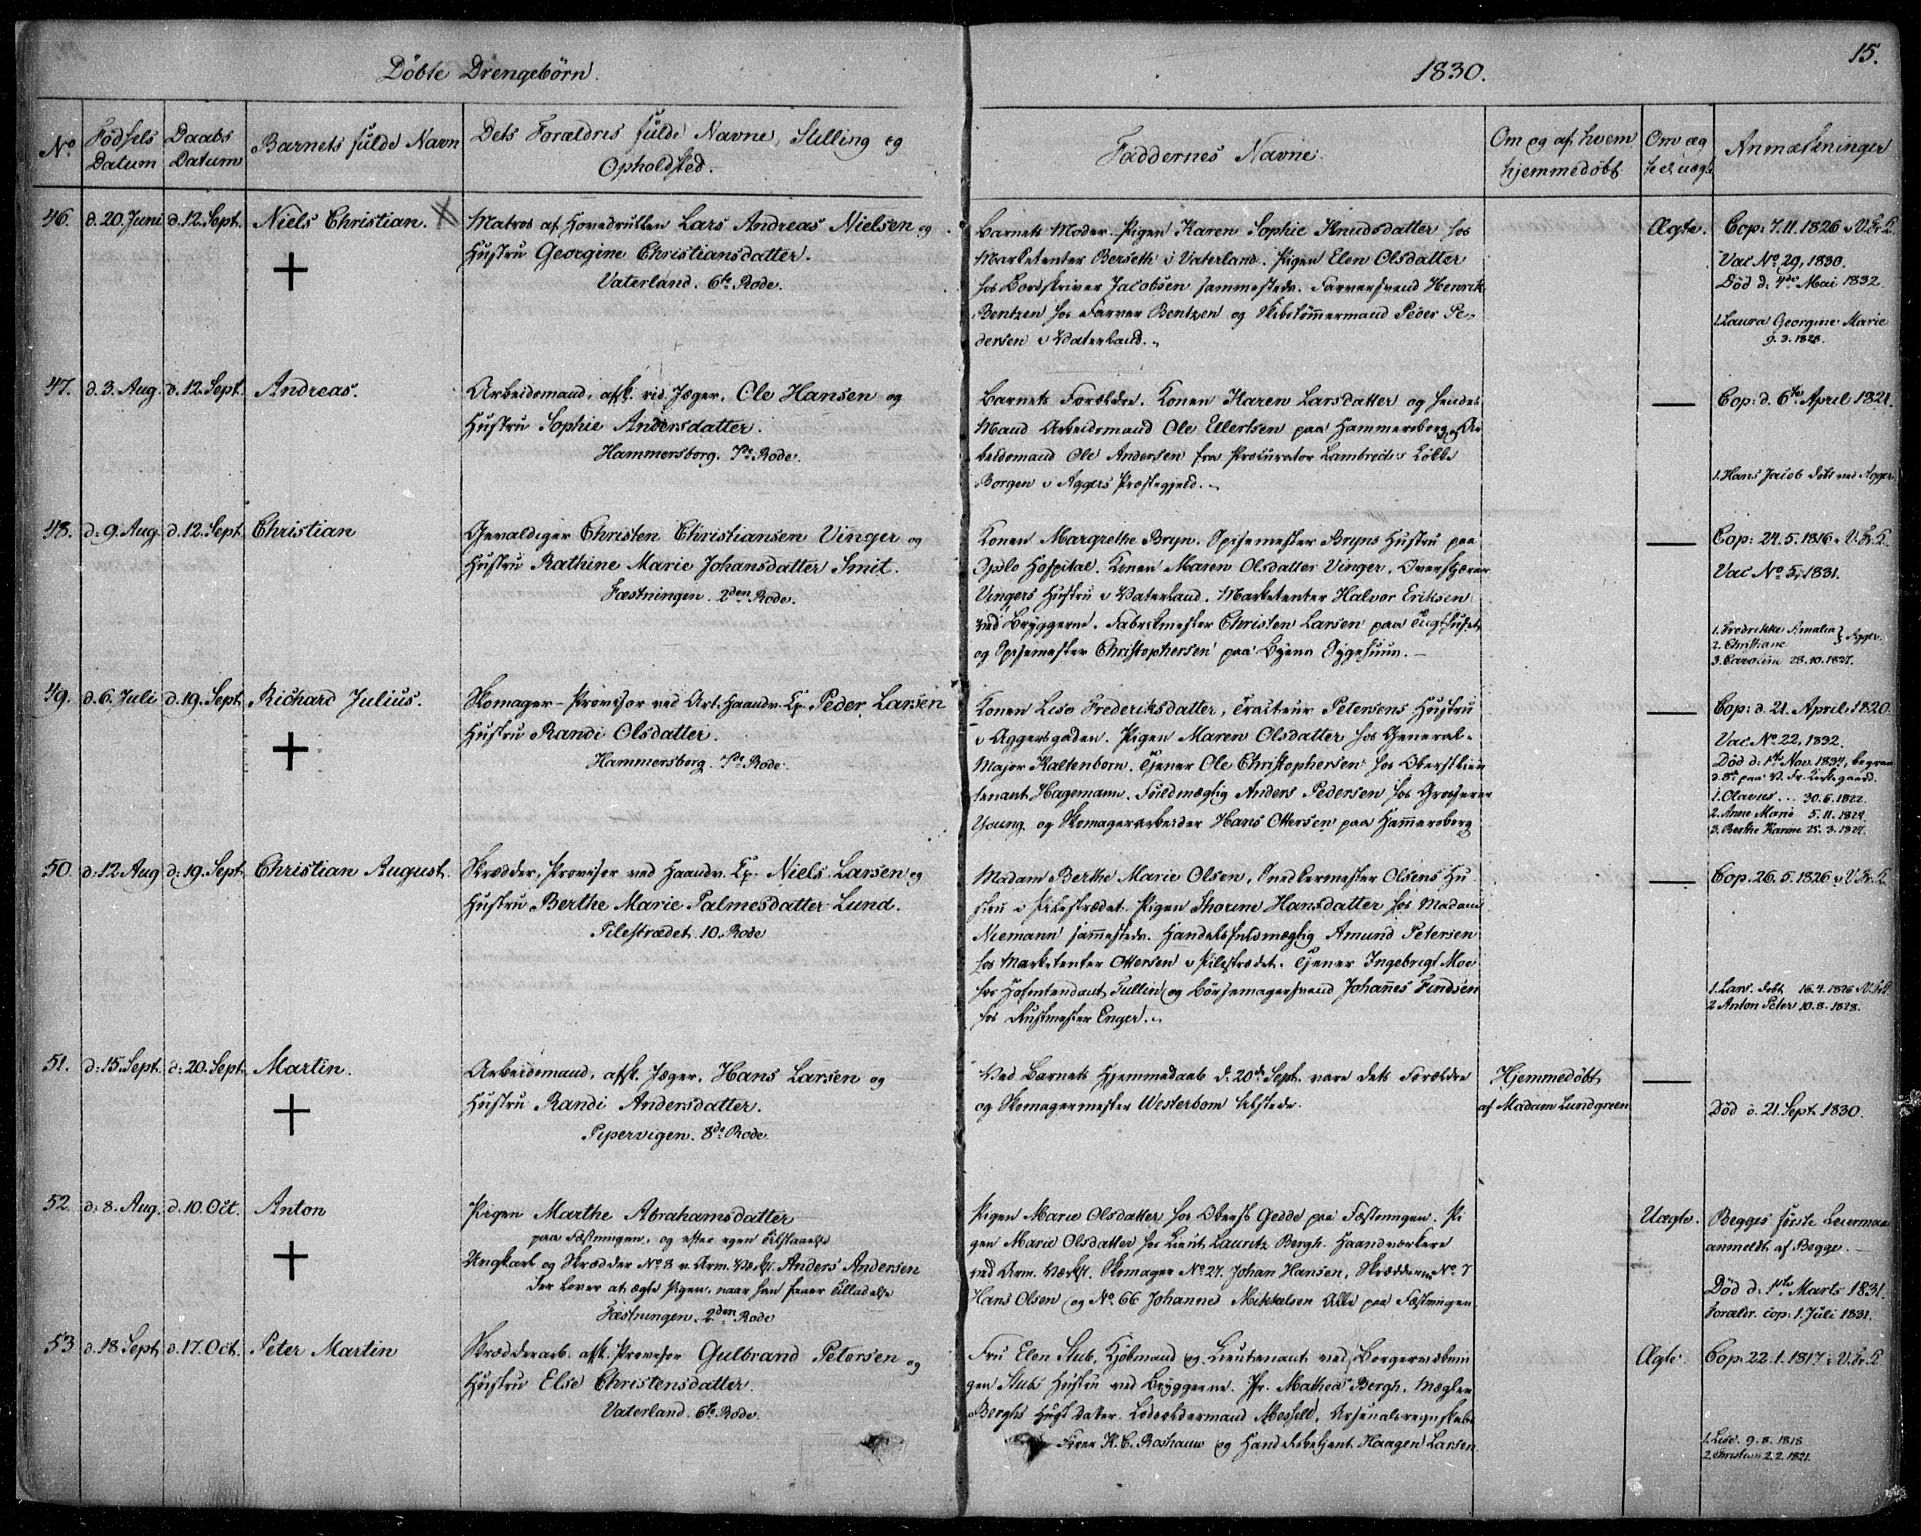 Døbte Drengebørn.
1830.
15.
No
Fødsels Datum
Daabs Datum
Barnets fulde Navn
Dets Forældres fulde Navne, Stilling og Opholdsted.
Faddernes Navne.
Om og af hvem hjemmedøbt
Om æg
te el. uægte
Anmærkninger
46. d. 20. Juni d. 12. Sept. Niels Christian.
Matros af Hovedrullen Lars Andreas Nielsen og
Hustru Georgine Christiansdatter.
Vaterland. 6te Rode.
Barnets Moder. Pigen Karen Sophie Knudsdatter hos
Marketenter Berseth i Vaterland. Pigen Elen Olsdatter
hos Bordskriver Jacobsen sammesteds. Farversvend Henrik
Bentzen hos Farver Bentzen og Skibstømmermand Peder Pe-
dersen i Vaterland.
Ægte.
Cop: 7.11.1826 i V.Fr.K.
Vac No 29, 1830.
Død d: 4de Mai 1832.
1. Laura Georgine Marie
9.3.1828.
47. d. 3. Aug. d. 12. Sept. Andreas.
Arbeidsmand, afsk. rid. Jæger, Ole Hansen og
Hustru Sophie Andersdatter.
Hammersborg. 7de Rode.
Barnets Forældre. Konen Karen Larsdatter og hendes
Mand Arbeidsmand Ole Ellertsen paa Hammersborg og Ar-
beidsmand Ole Andersen fra Procurator Lambrechts Løkke
Borgen i Aggers Præstegjeld.
Cop: d. 6te April 1821.
1. Hans Jacob døbt ved Agger
48. d. 9. Aug. d. 12. Sept. Christian
Gevaldiger Christen Christiansen Vinger og
Hustru Kathine Marie Johansdatter Smit.
Fæstningen. 2den Rode.
Konen Margrethe Bryn. Spisemester Bryns Hustru paa
Opslo Hospital. Konen Maren Olsdatter Vinger, Overskjærer
Vingers Hustru i Vaterland. Marketenter Halvor Eriksen
ved Bryggerne. Fabrikmester Christen Larsen paa Tugthuset
og Spisemester Christophersen paa Byens Sygehuus.
Cop: 24.5.1816 i V.Fr.K.
Vac No 5, 1831.
1. Fredrikke Amalia
2. Christiane
Agger.
3. Caroline 28.10.1827.
49. d. 6. Juli d. 19. Sept. Richard Julius.
Skomager-Provisor ved Art. Haandv. Cp. Peder Larsen
Hustru Randi Olsdatter.
Hammersborg. 7de Rode.
Konen Lise Frederiksdatter, Tracteur Petersens Hustru
i Aggersgaden. Pigen Maren Olsdatter hos General-
Major Kaltenborn. Tjener Ole Christophersen hos Oberstlieu
tenant Hagemann. Fuldmægtig Anders Pedersen hos Grosserer
Young og Skomagerarbeider Hans Ottersen paa Hammersborg
Cop: d. 21. April 1820.
Vac. No 22, 1832.
Død d: 1ste Nov. 1834, begrav.
d. 8de paa V. Fr. Kirkegaard.
1. Olavus... 30.6.1822.
2. Anne Marie 5.11.1824.
3. Berthe Karine 25.3.1827.
50. d: 12 Aug d: 19. Sept. Christian August.
Skrædder, Provisor ved Haandv. Cp. Niels Larsen og
Hustru Berthe Marie Palmesdatter Lund.
Pilestrædet 10. Rode
Madam Berthe Marie Olsen, Snedkermester Olsens Hu-
stru i Pilestrædet. Pigen Thorine Hansdatter hos Madam
Niemann sammesteds. Handelsfuldmægtig Amund Petersen
hos Marketenter Ottersen i Pilestrædet. Tjener Ingebrigt Moe
hos Hofintendant Tullin og Børsemagersvend Johannes Findsen
hos Rustmester Enger.
Cop. 26.5.1826 i V.Fr.K.
1. Lars. døbt 16.4.1826 V.Fr.K.
2 Anton Peter 10.8.1828.
51. d: 15. Sept. d: 20. Sept. Martin.
Arbeidsmand, afsk. Jæger, Hans Larsen og
Hustru Randi Andersdatter.
Pipervigen. 8de Rode.
Ved Barnets Hjemmedaab d. 20de Sept. vare dets Forældre
og Skomagermester Westerbom tilstede.
Hjemmedøbt
af Madam Lundgreen
Død d. 21. Sept. 1830.
52. d: 8. Aug. d. 10. Oct. Anton
Pigen Marthe Abrahamsdatter
paa Fæstningen, og efter egen Tilstaaelse
Ungkarl og Skrædder No 8 v. Arm. Værkst. Anders Andersen
der lover at ægte Pigen, naar han faaer Tilladelse
Fæstningen. 2den Rode
Pigen Marie Olsdatter hos Oberst Gedde paa Fæstningen. Pi
gen Marie Olsdatter hos Lieut. Lauritz Bergh. Haandværkere
ved Arm. Værkst. Skomager No 27. Johan Hansen, Skrædderne No 7
Hans Olsen og No 66 Johannes Mikkelsen Alle paa Fæstningen
Uægte.
Begges første Leiermaal
anmeldt af Begge.
Død d: 1ste Marts 1831.
Foræld. cop: 1. Juli 1831.
53 d. 18 Sept. d. 17. Oct. Peter Martin
Skrædderarb. afsk. Provisor Gulbrand Petersen og
Hustru Else Christensdatter.
Vaterland. 6te Rode.
Fru Elen Stub, Kjøbmand og Lieutenant ved Borgervæbnin
gen Stubs Hustru ved Bryggerne. Jfr. Mathea Bergh, Mægler
Berghs Huusdatter. Lodsoldermand Mosfeld, Arsenalsregnskabs
Fører K. C. Roshauw og Handelsbetjent Haagen Larsen
Ægte.
Cop: 22.1.1817 i V.Fr.K.
1. Lise. 9.8.1818.
2 Christian 2.2.1821.